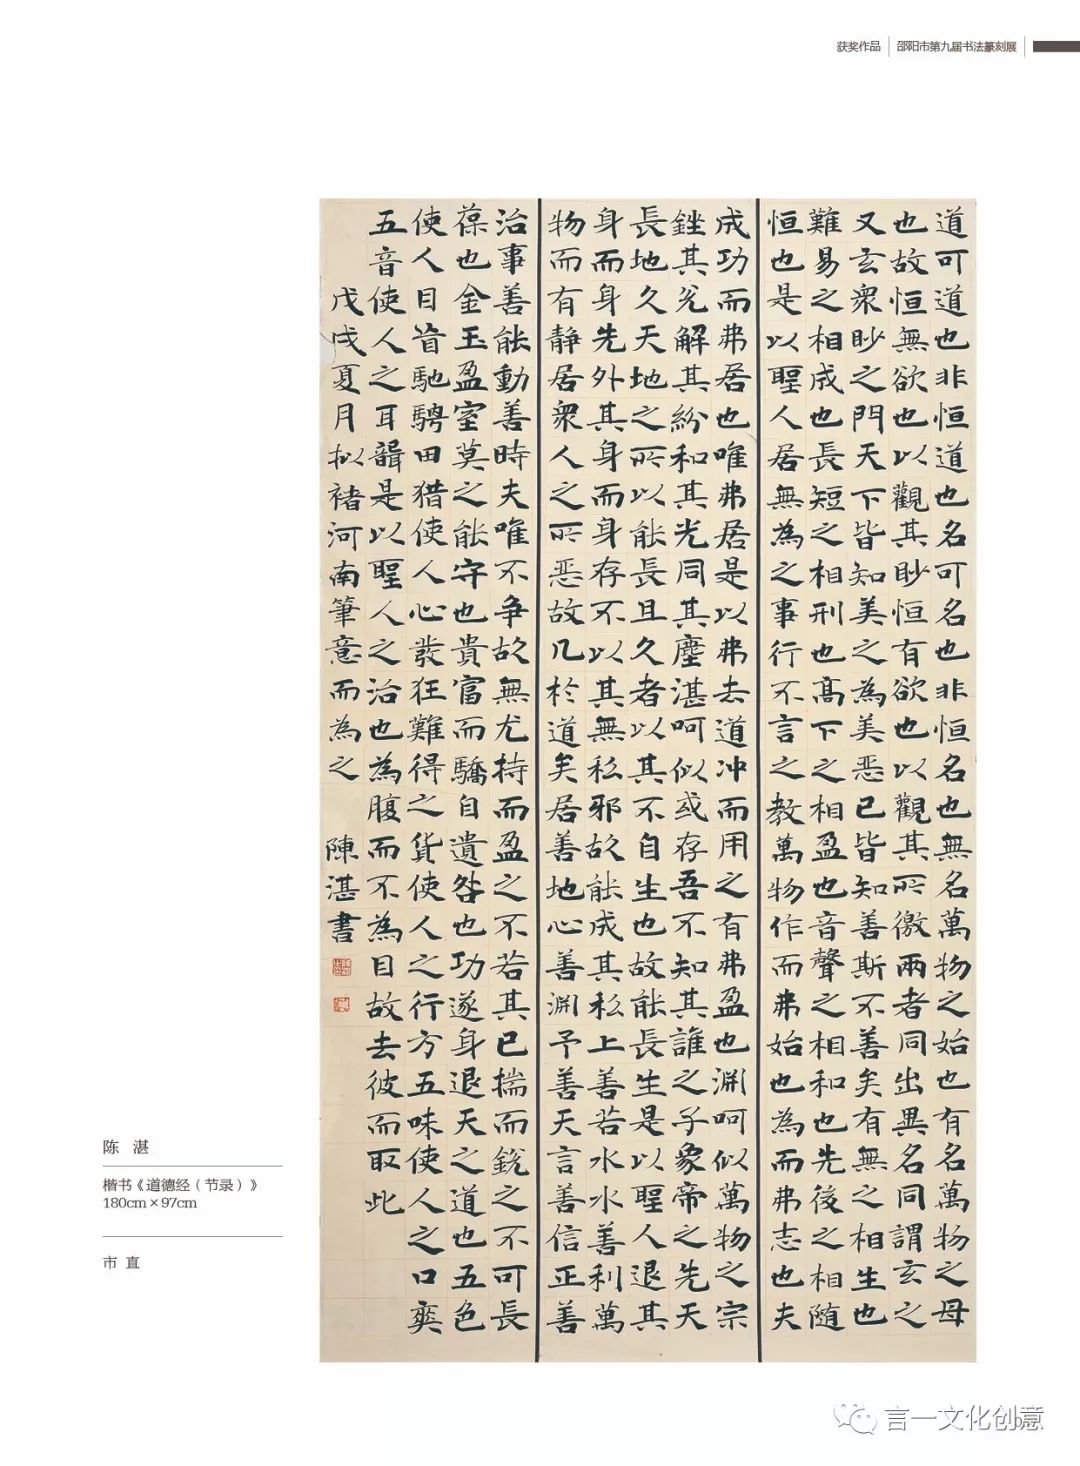 获奖作品 邵阳市第九届书法篆刻展
道可道也非恒道也名可名也非恒名也無名萬物之始也有名萬物之母
也故恒無欲也以觀其眇恒有欲也以觀其所徼兩者同出異名同謂玄之
又玄衆眇之門天下皆知美之為美惡已皆知善斯不善矣有無之相生也
難易之相成也長短之相刑也高下之相盈也音聲之相和也先後之相隨
恒也是以聖人居無為之事行不言之教萬物作而弗始也為而弗志也夫
成功而弗居也唯弗居是以弗去道冲而用之有弗盈也淵呵似萬物之宗
銼其兌解其紛和其光同其塵湛呵似或存吾不知其誰之子象帝之先天
長地久天地之所以能長且久者以其不自生也故能長生是以聖人退其
身而身先外其身而身存不以其無私邪故能成其私上善若水水善利萬
物而有静居衆人之所惡故几於道矣居善地心善淵予善天言善信正善
治事善能動善時夫唯不争故無尤持而盈之不若其已揣而銳之不可長
葆也金玉盈室莫之能守也貴富而驕自遺咎也功遂身退天之道也五色
使人目盲馳騁田猎使人心發狂難得之貨使人之行方五味使人之口爽
五音使人之耳聾是以聖人之治也為腹而不為目故去彼而取此
戊戌夏月拟褚河南筆意而為之 陳湛書
陈 湛
楷书《道德经（节录）》
180cm×97cm
市 直
言一文化创意